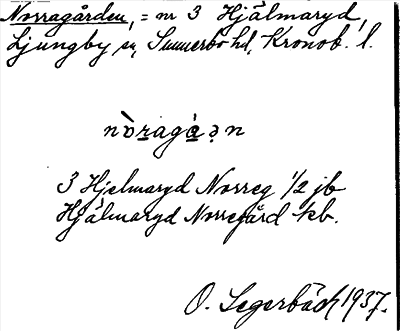 Norragården, = nr 3 Hjälmaryd,
Ljungby sn, Sunnerbo hd, Kronob. l.
nòragá̱ən
3 Hjelmaryd Norreg 1/2 jb
Hjälmaryd Norregård kb.
O. Segerbäck 1937.